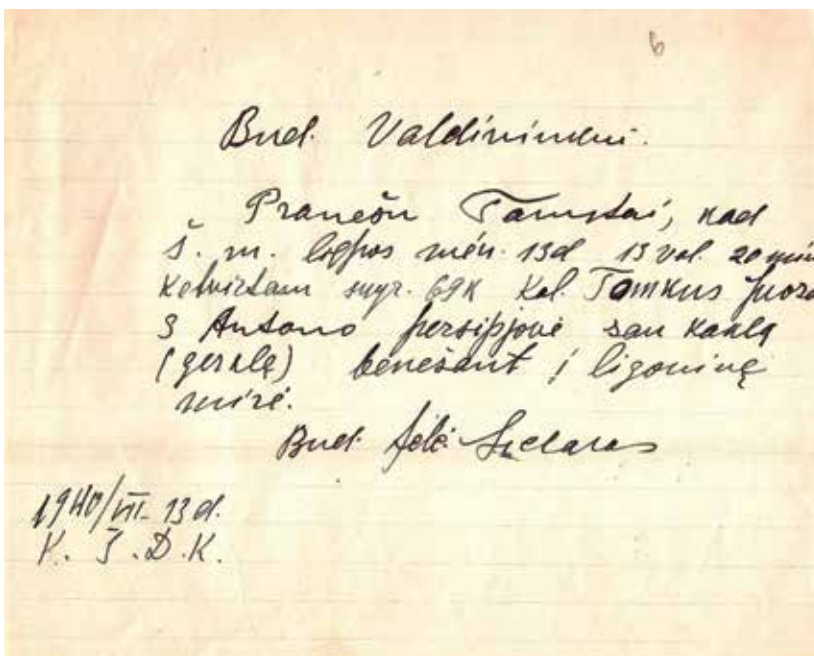 6
Bud. Valdininkui.
Pranešu Tamstai, kad
š. m. liepos mėn. 13d 13 val. 20 min
ketvirtam skyr. 69 K Kal. Tamkus
s Antano persipjovė sau kaklą
(gerklę) benešant į ligoninę
mirė.
Bud.
1940/VII-13 d.
K. S. D. K.